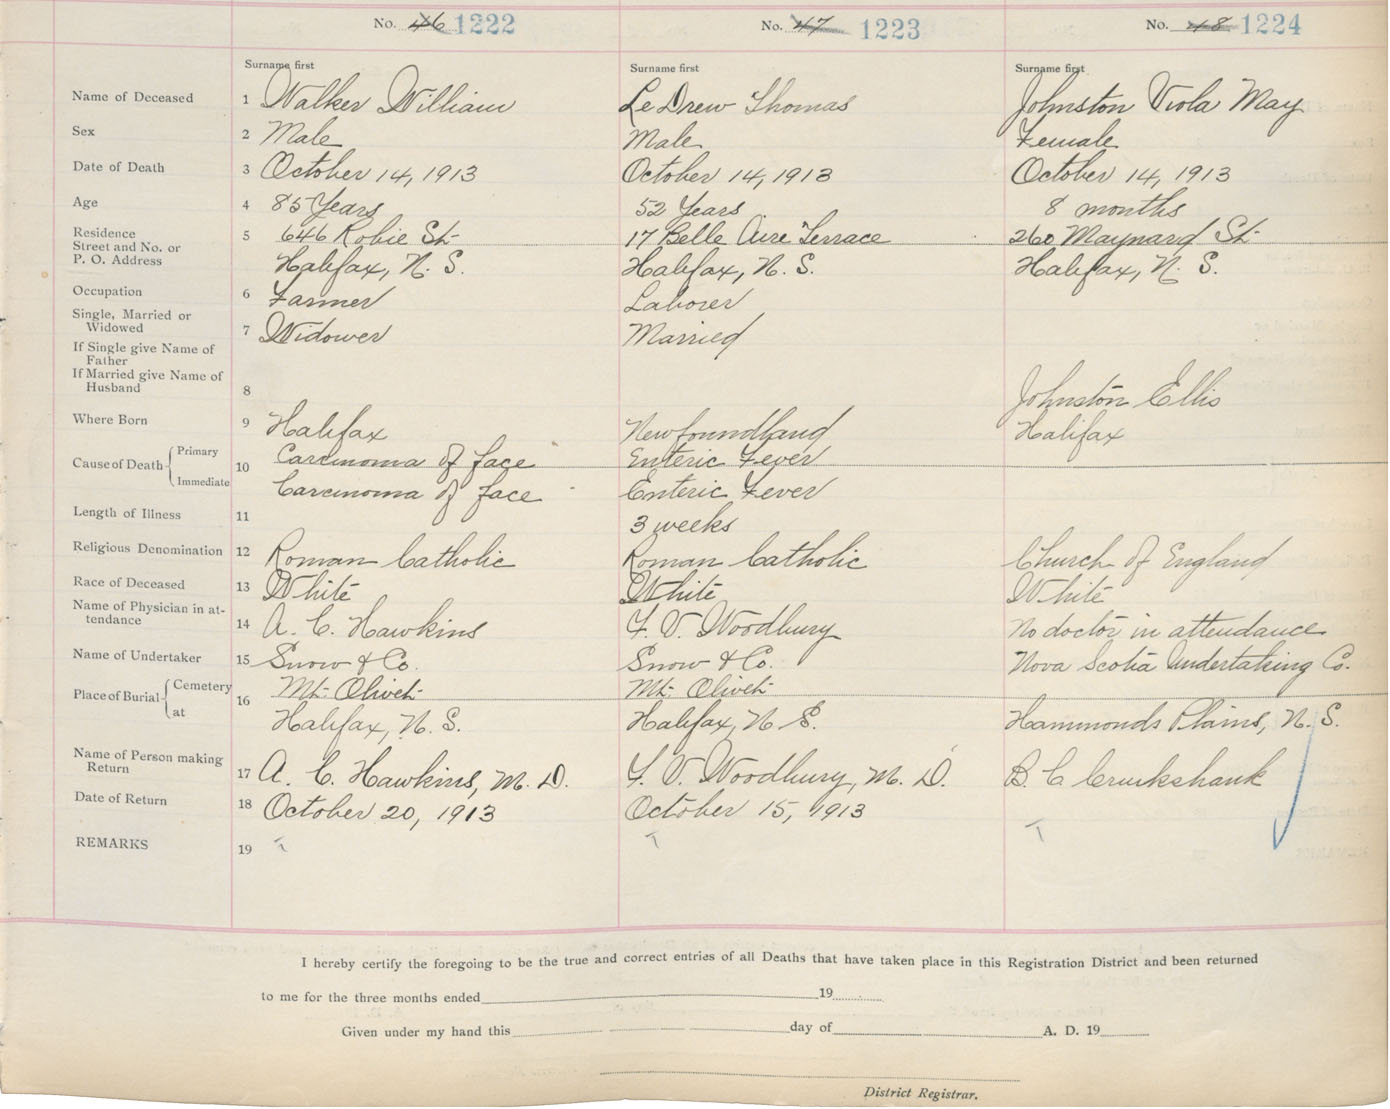 No. 46 1222 No. 47 1223 No. 48 1224
Surname first Surname first Surname first
Name of Deceased 1 Walker William LeDrew Thomas Johnston Viola May
Sex 2 Male Male Female
Date of Death 3 October 14, 1913 October 14, 1913 October 14, 1913
Age 4 85 Years 52 Years 8 months
Residence 5 646 Robie St. 17 Belle Aire Terrace 260 Maynard St.
Street and No. or
P. O. Address Halifax, N. S. Halifax, N. S. Halifax, N. S.
Occupation 6 Farmer Laborer
Single, Married or
Widowed 7 Widower Married
If Single give Name of
Father
If Married give Name of
Husband 8 Johnston Ellis
Where Born 9 Halifax Newfoundland Halifax
Cause of Death Primary 10 Carcinoma of face Enteric Fever
Immediate Carcinoma of face Enteric Fever
Length of Illness 11 3 weeks
Religious Denomination 12 Roman Catholic Roman Catholic Church of England
Race of Deceased 13 White White White
Name of Physician in at-
tendance 14 A. C. Hawkins F. V. Woodbury No doctor in attendance
Name of Undertaker 15 Snow & Co. Snow & Co. Nova Scotia Undertaking Co.
Place of Burial Cemetery 16 Mt. Olivet Mt. Olivet
at Halifax, N. S. Halifax, N S. Hammonds Plains, N. S.
Name of Person making
Return 17 A. C. Hawkins, M. D. F. V. Woodbury, M. D. B. C Cruikshank
Date of Return 18 October 20, 1913 October 15, 1913
REMARKS 19
I hereby certify the foregoing to be the true and correct entries of all Deaths that have taken place in this Registration District and been returned
to me for the three months ended 19
Given under my hand this day of A. D. 19
District Registrar.